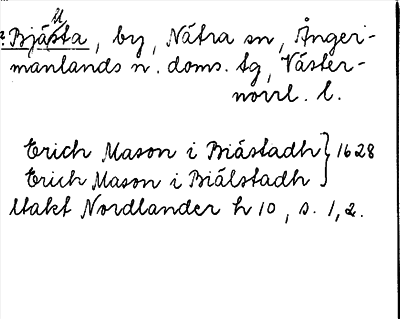 Bjästa, by, Nätra sn, Ånger-
manlands n. doms. tg, Väster-
norrl. l.
Erich Mason i Biästadh } 1628
Erich Mason i Biälstadh
Utakt Nordlander h 10, s. 1, 2.